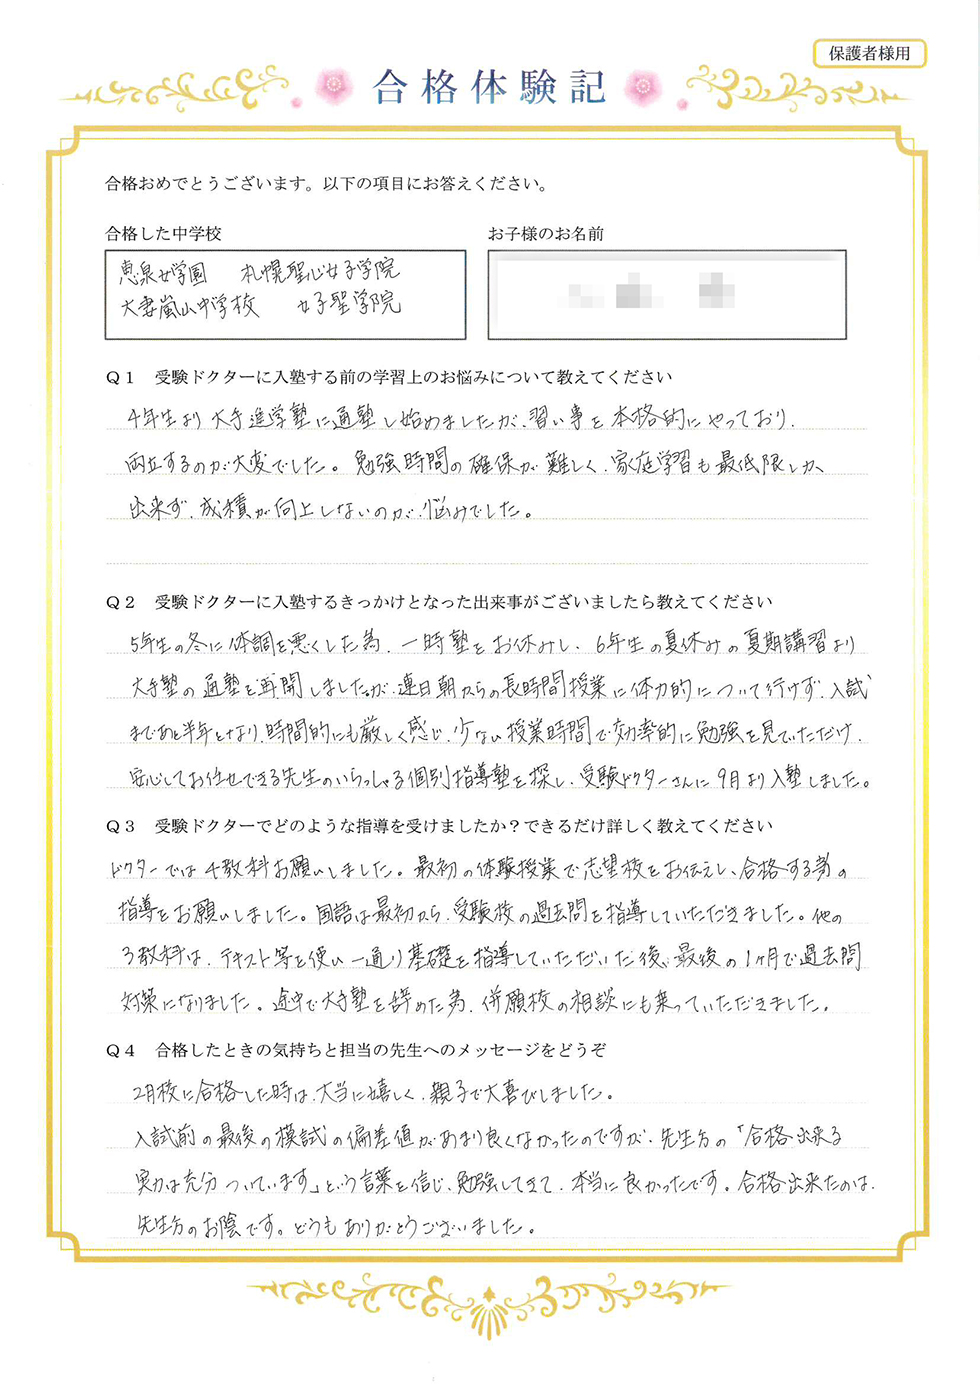 保護者様用
合格体験記
合格おめでとうございます。以下の項目にお答えください。
合格した中学校
お子様のお名前
恵泉女学園　札幌聖心女子学院
大妻嵐山中学校　女子聖学院
Q1　受験ドクターに入塾する前の学習上のお悩みについて教えてください
4年生より大手進学塾に通塾し始めましたが、習い事を本格的にやっており、
両立するのが大変でした。勉強時間の確保が難しく、家庭学習も最低限しか
出来ず、成積が向上しないのが、悩みでした。
Q2　受験ドクターに入塾するきっかけとなった出来事がございましたら教えてください
5年生の冬に体調を悪くした為、一時塾をお休みし、6年生の夏休みの夏期講習より
大手塾の通塾を再開しましたが、連日朝からの長時間授業に体力的について行けず、入試
まであと半年となり、時間的にも厳しく感じ、少ない授業時間で効率的に勉強を見ていただけ、
安心してお任せできる先生のいらっしゃる個別指導塾を探し、受験ドクターさんに9月より入塾しました。
Q3　受験ドクターでどのような指導を受けましたか？できるだけ詳しく教えてください
ドクターでは4教科お願いしました。最初の体験授業で志望校をお伝えし、合格する為の
指導をお願いしました。国語は最初から、受験校の過去問を指導していただきました。他の
3教科は、テキスト等を使い一通り基礎を指導していただいた後、最後の1ヶ月で過去問
対策になりました。途中で大手塾を辞めた為、併願校の相談にも乗っていただきました。
Q4　合格したときの気持ちと担当の先生へのメッセージをどうぞ
2月校に合格した時は、本当に嬉しく、親子で大喜びしました。
入試前の最後の模試の偏差値があまり良くなかったのですが、先生方の「合格出来る
実力は充分ついています」という言葉を信じ、勉強してきて、本当に良かったです。合格出来たのは、
先生方のお陰です。どうもありがとうございました。